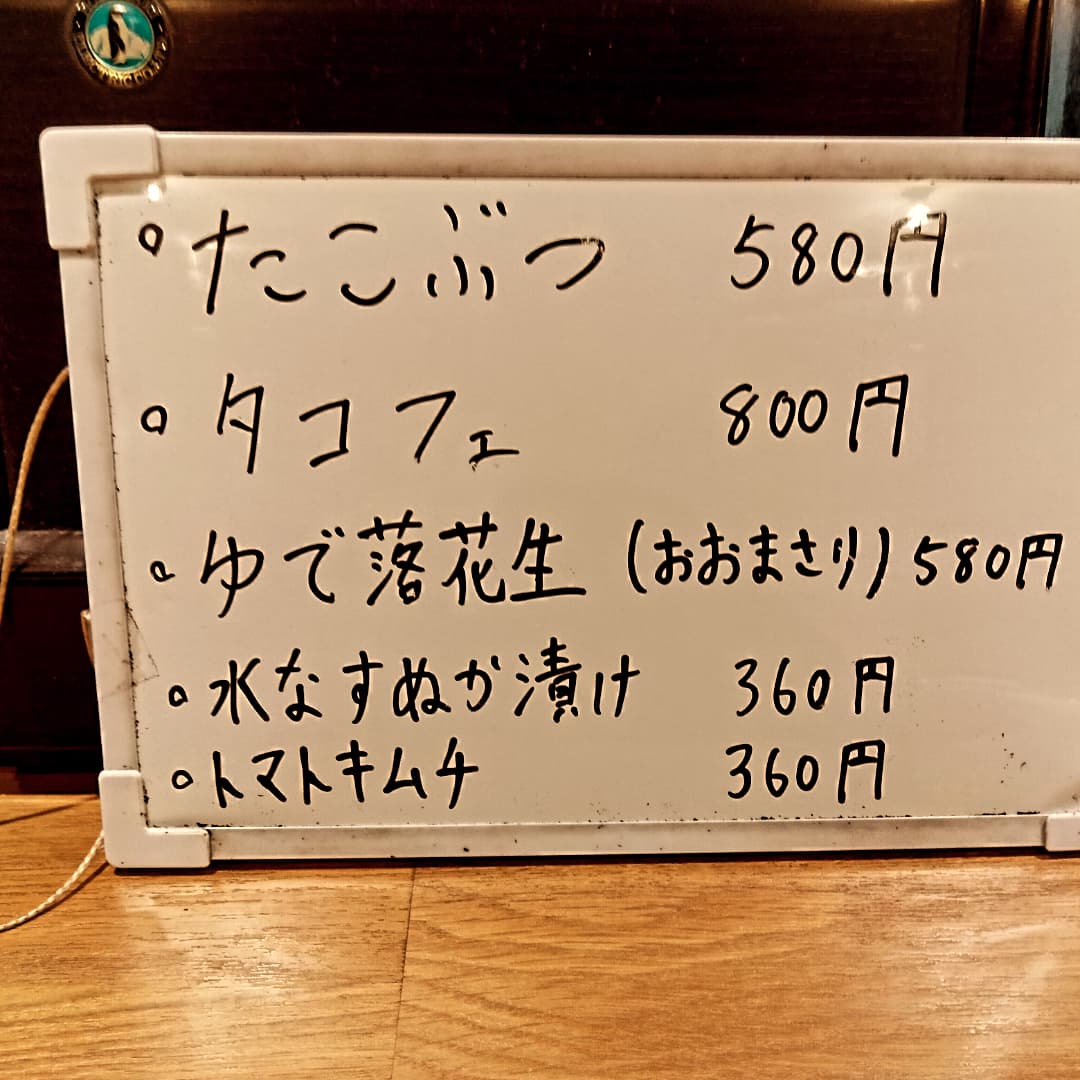 。たこぶつ 580円
。タコフェ 800円
。ゆで落花生(おおまさり)580円
。水なすぬか漬け 360円
。トマトキムチ 360円